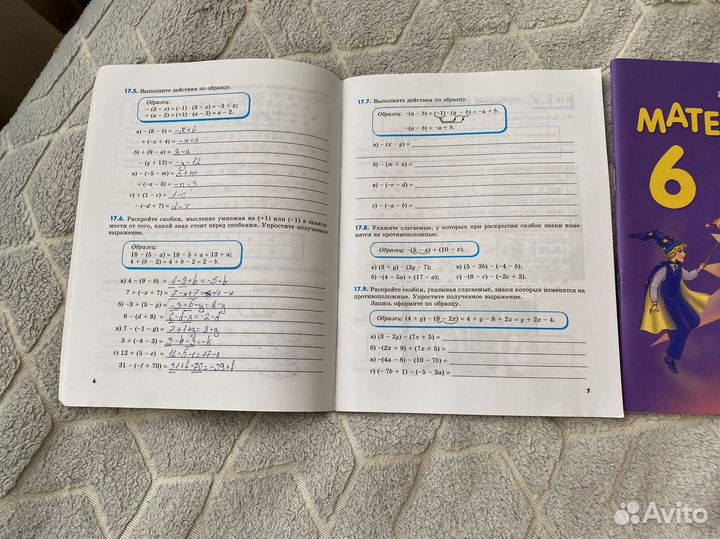 17.5. Выполните действия по образцу.
Образец:
− (3 − x) = (−1) · (3 − x) = −3 + x;
+ (a − 2) = (+1) · (a − 2) = a − 2.
а) − (8 − b) = −8+b
+ (−x + 4) = −x+4
б) + (9 − a) = 9−a
− (y + 12) = −y−12
в) − (−5 − m) = 5+m
+ (−n − 3) = −n−3
г) + (1 − c) = 1−c
− (−d + 7) = d−7
17.6. Раскройте скобки, мысленно умножая на (+1) или (−1) в зависи-
мости от того, какой знак стоит перед скобками. Упростите полученное
выражение.
Образец:
18 − (5 − a) = 18 − 5 + a = 13 + a;
4 + (b − 2) = 4 + b − 2 = 2 + b.
а) 4 − (9 − b) = 4−9+b=−5+b
7 + (−x + 7) = 7−x+7= 14−x
б) −3 + (5 − y) = −3+5−y=2−y
6 − (d + 8) = 6−d−8=−2−d
в) 7 − (−1 − g) = 7+1+g=8+g
3 + (−k − 3) = 3−k−3=−k
г) 12 + (5 − e) = 12+5−e=17−e
31 − (−f + 70) = 31+f−70=−39+f
6
17.7. Выполните действия по образцу.
Образец: −(a − b) = (−1) · (a − b) = −a + b.
−(a − b) = −a + b.
а) − (x − y) =
б) − (m + n) =
в) − (−c − d) =
г) − (−a − b) =
17.8. Укажите слагаемые, у которых при раскрытии скобок знаки изме-
нятся на противоположные.
Образец: −(5 − x) + (10 − x).
а) (3 + y) − (3y − 7); в) (5 − 3b) − (−4 − b);
б) −(4 − 5a) + (17 − a); г) −(8 − c) − (−2c + 3).
17.9. Раскройте скобки, указывая слагаемые, знаки которых изменятся на
противоположные. Упростите полученное выражение.
Запись оформите по образцу.
Образец: (4 + y) − (8 − 2x) = 4 + y − 8 + 2x = y + 2x − 4.
а) (3 − 2y) − (7x + 5) =
б) −(2x + 9) + (7x + 5) =
в) −(4a − 8) − (10 − 7b) =
г) (− 7b + 1) − (−5 − 3a) =
7
МАТЕ
6
Avito